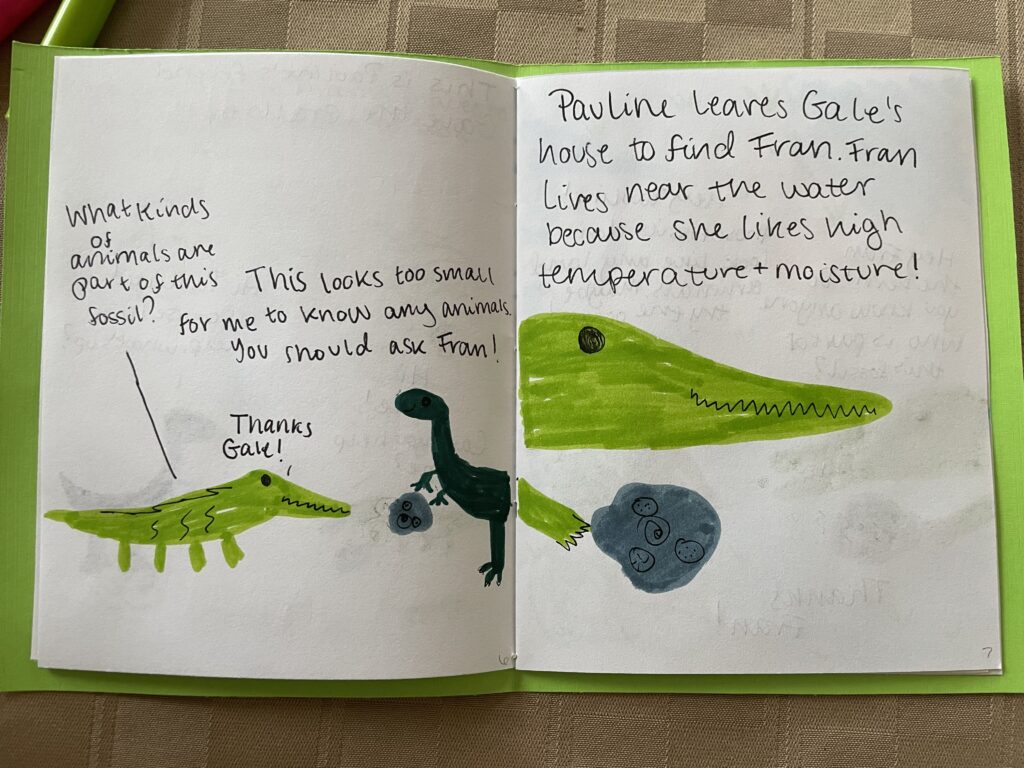 What kinds
of
animals are
part of this
fossil?
This looks too small
for me to know any animals.
You should ask Fran!
Thanks
Gale!
6
Pauline leaves Gale's
house to find Fran. Fran
lives near the water
because she likes high
temperature + moisture!
7